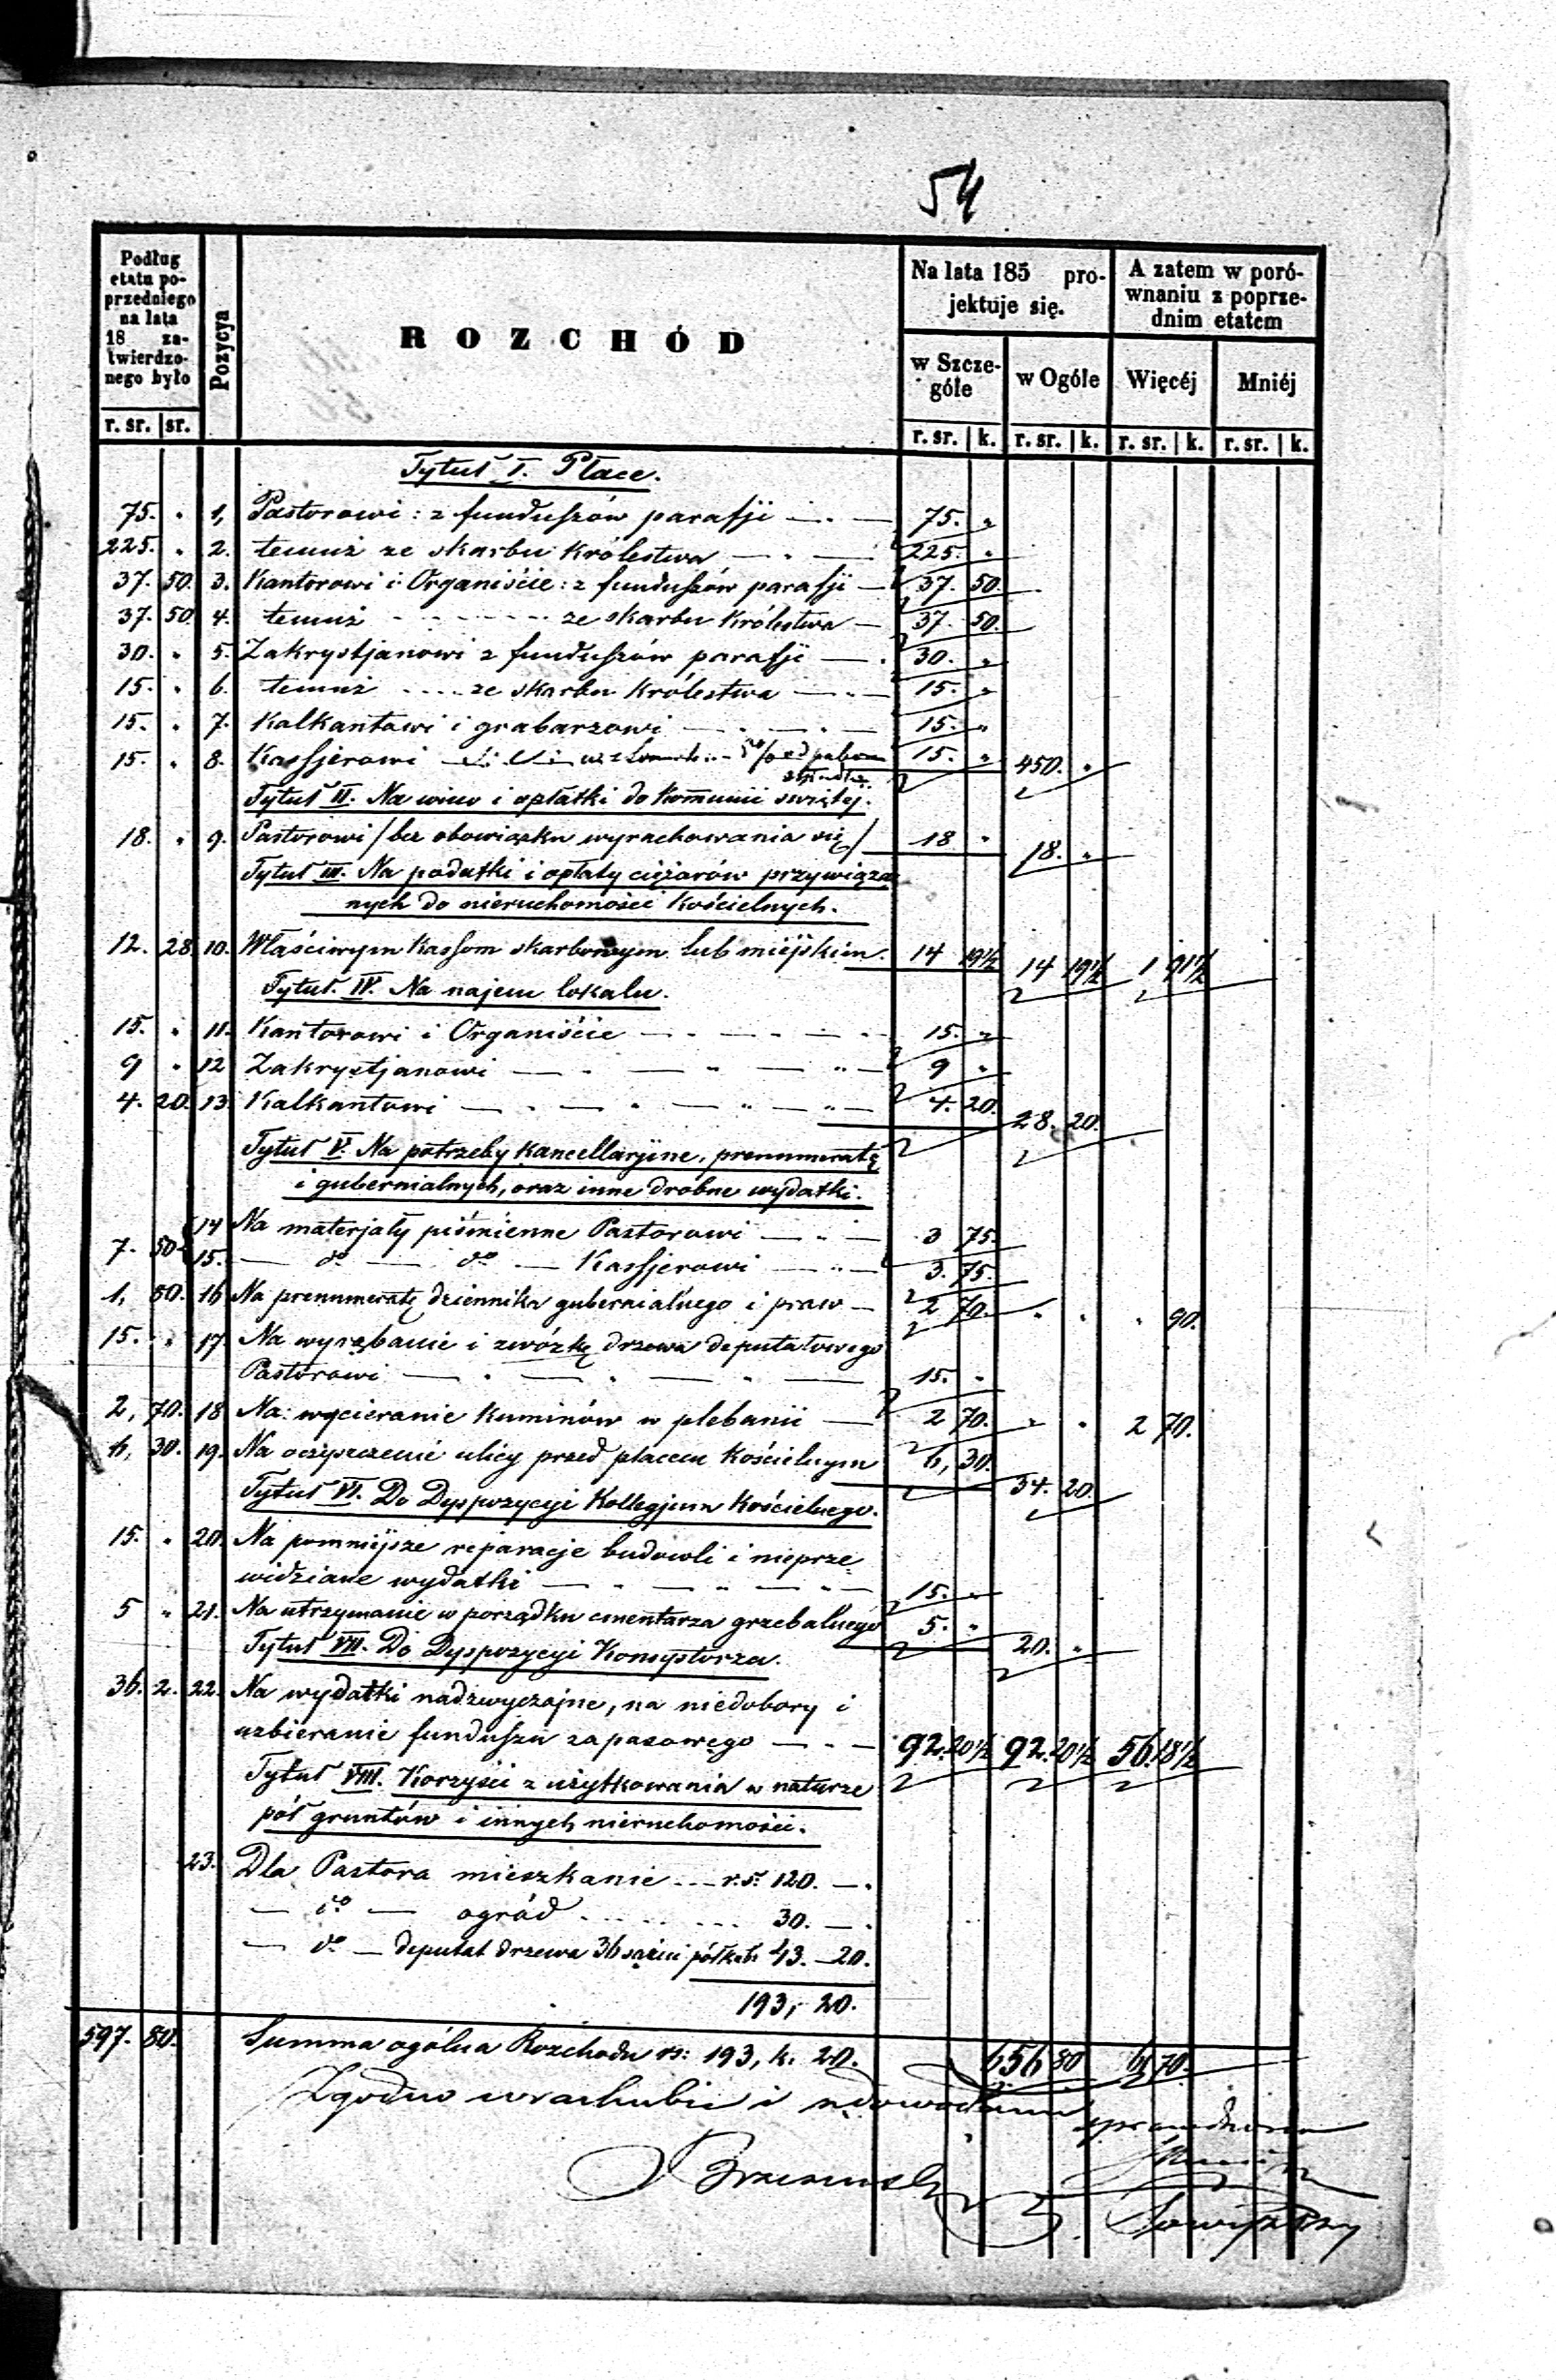 54
Podług etatu poprzedniego na lata 18 zatwierdzonego było
Pozycya
ROZCHÓD
Na lata 185 projektuje się.
A zatem w porównaniu z poprzednim etatem
w Szczególe
w Ogóle
Więcéj
Mniéj
r. sr. | sr.
r. sr. | k. r. sr. | k. r. sr. | k. r. sr. | k.
Tytuł I. Płace.
75. " 1, Pastorowi: z funduszów parafji 75. "
225. " 2. temuż ze skarbu Królestwa 225. "
37. 50. 3. Kantorowi i Organiście: z funduszów parafji 37. 50.
37. 50 4. temuż ze skarbu Królestwa 37. 50.
30. " 5. Zakrystjanowi z funduszów parafji 30. "
15. " 6. temuż ze skarbu Królestwa 15. "
15. " 7. Kalkantowi i grabarzowi 15. "
15. " 8. Kassjerowi 15. " 450. "
Tytuł II. Na wino i opłatki do Komunii świętej.
18. " 9. Pastorowi / bez obowiązku wyrachowania się / 18 " 18. "
Tytuł III. Na podatki i opłaty ciężarów przywiąza
nych do nieruchomości Kościelnych.
12. 28 10. Właściwym Kassom skarbowym lub miejskim. 14 19½ 14 19½ 1 91½
Tytuł. IV. Na najem lokalu.
15. " 11. Kantorowi i Organiście 15. "
9 " 12 Zakrystjanowi 9 "
4. 20. 13. Kalkantowi 4. 20. 28. 20.
Tytuł V. Na potrzeby Kancellaryine, prenumeratę
i gubernialnych, oraz inne drobne wydatki.
14 Na materjały piśmienne Pastorowi 3 75.
7. 50 15. — do — do — Kassjerowi 3. 75.
1, 80. 16 Na prenumeratę dziennika gubernialnego i praw 2 70. " " " 90.
15. " 17. Na wyrąbanie i zwózkę drzewa deputatowego
Pastorowi 15. "
2, 70. 18 Na wycieranie Kuminów w plebanii 2 70. " " 2 70.
6, 30. 19. Na oczyszczenie ulicy przed placem Kościelnym 6, 30. 34. 20.
Tytuł VI. Do Dyspozycyi Kollegjum Kościelnego.
15. " 20. Na pomniejsze reparacje budowli i nieprze
widziane wydatki 15. "
5 " 21. Na utrzymanie w porządku cmentarza grzebalnego 5. " 20. "
Tytuł VII. Do Dyspozycyi Konsystorza.
36. 2. 22. Na wydatki nadzwyczajne, na niedobory i
uzbieranie funduszu zapasowego 92. 20½ 92. 20½ 56. 18½
Tytuł VIII. Korzyści z użytkowania w naturze
pól gruntów i innych nieruchomości.
23. Dla Pastora mieszkanie r.s. 120. —.
— do — ogród 30. —.
— do — deputat drzewa 36 sążni półkub. 43. — 20.
193, 20.
597. 80. Summa ogólna Rozchodu rs: 193, k. 20. 656 80 61 70.
Zgodno w rachubie i z dowodami